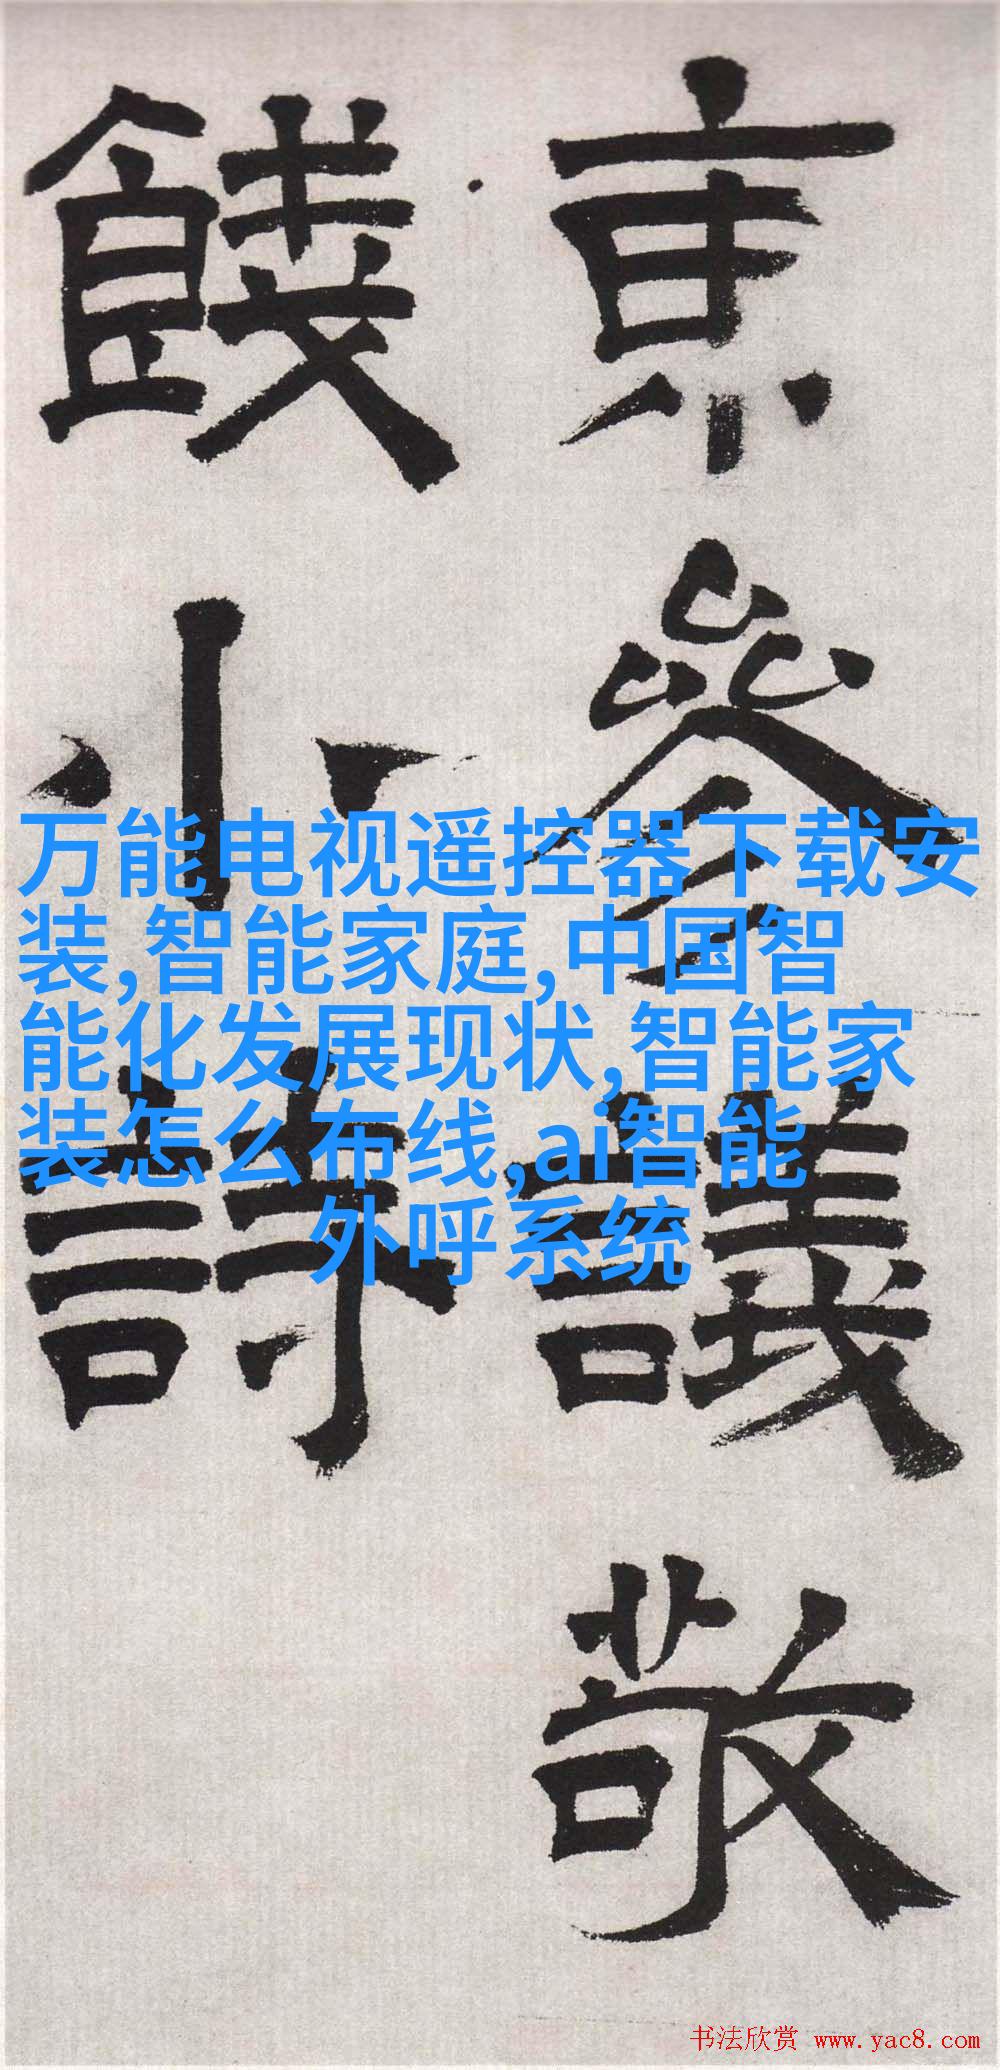 京參議敬
餞小詩
万能电视遥控器下载安
装,智能家庭,中国智
能化发展现状,智能家
装怎么布线,ai智能
外呼系统
书法欣赏 www.yac8.com